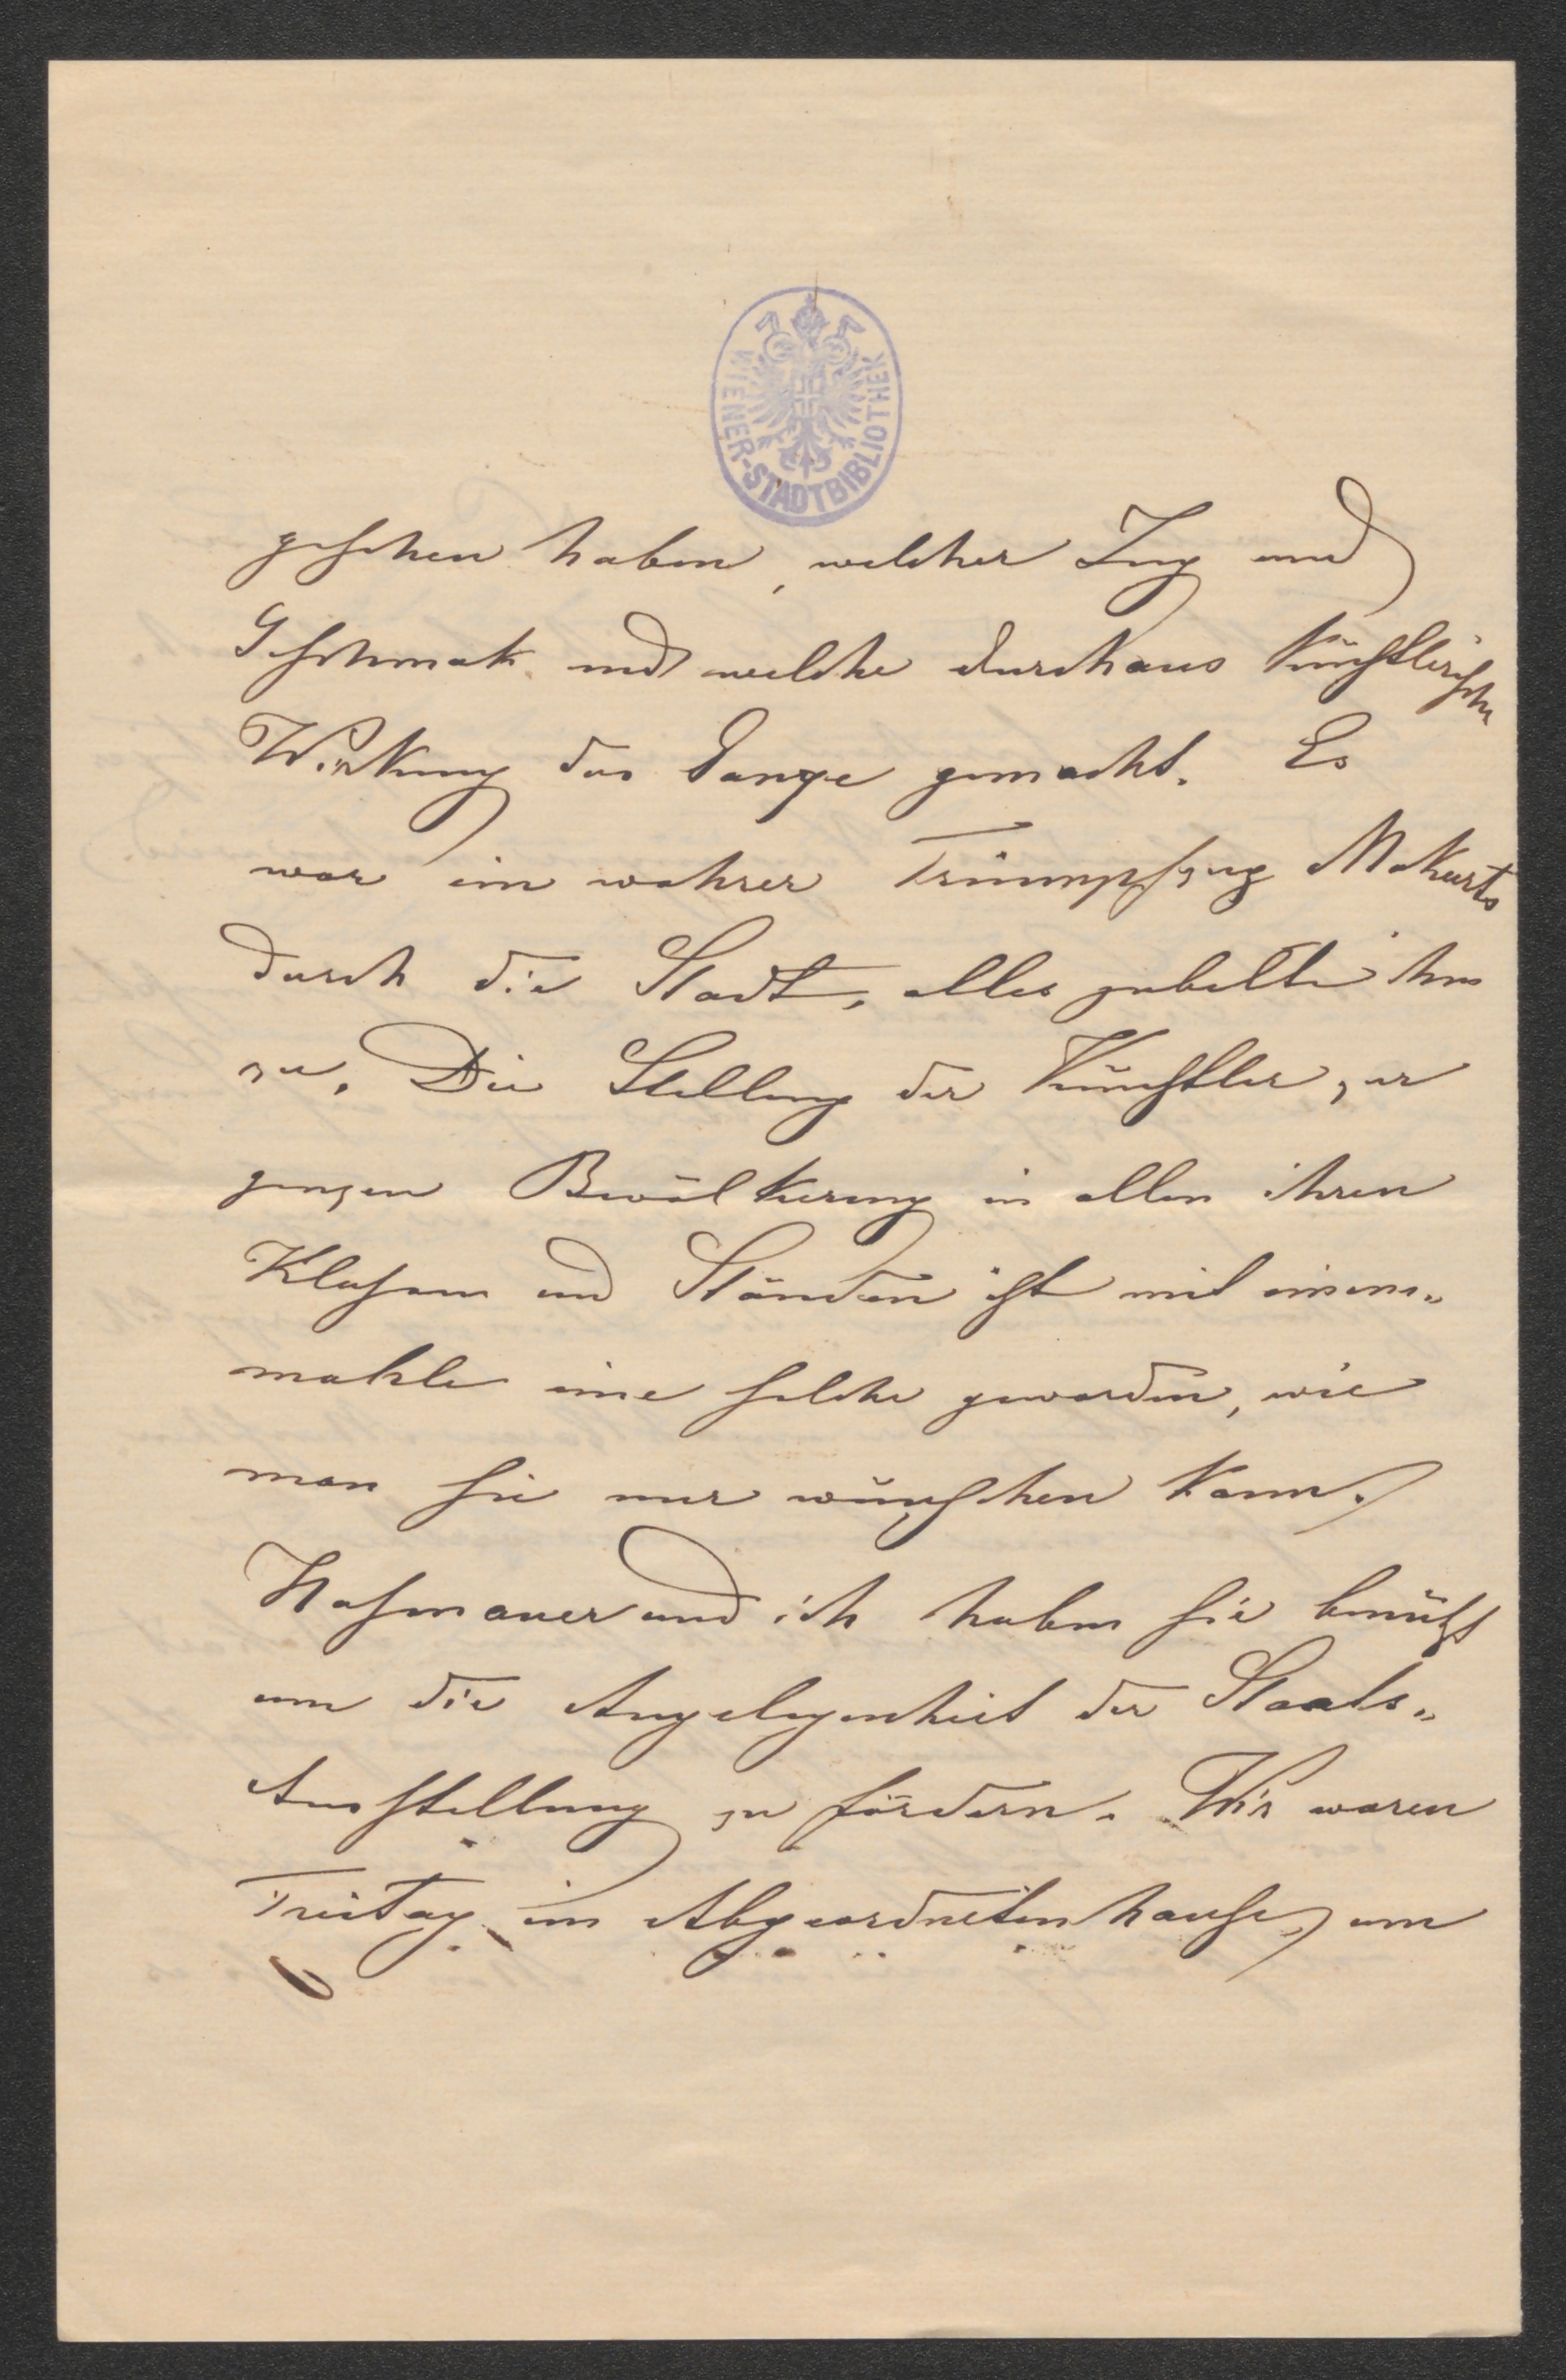 WIENER-STADTBIBLIOTHEK
gesehen haben, welcher Zug und
Geschmak und welche durchaus künstlerische
Wirkung das Ganze gemacht. Es
war ein wahrer Triumpfzug Makarts
durch die Stadt, alles jubelte ihm
zu. Die Stellung der Künstler zur
ganzen Bevölkerung in allen ihren
Klassen und Ständen ist mit einem„
mahle eine solche geworden, wie
man sie nur wünschen kann.
und ich haben sie benützt
um die Angelegenheit der Staats„
Ausstellung zu fördern. Wir waren
Freitag im Abgeordnetenhause, um